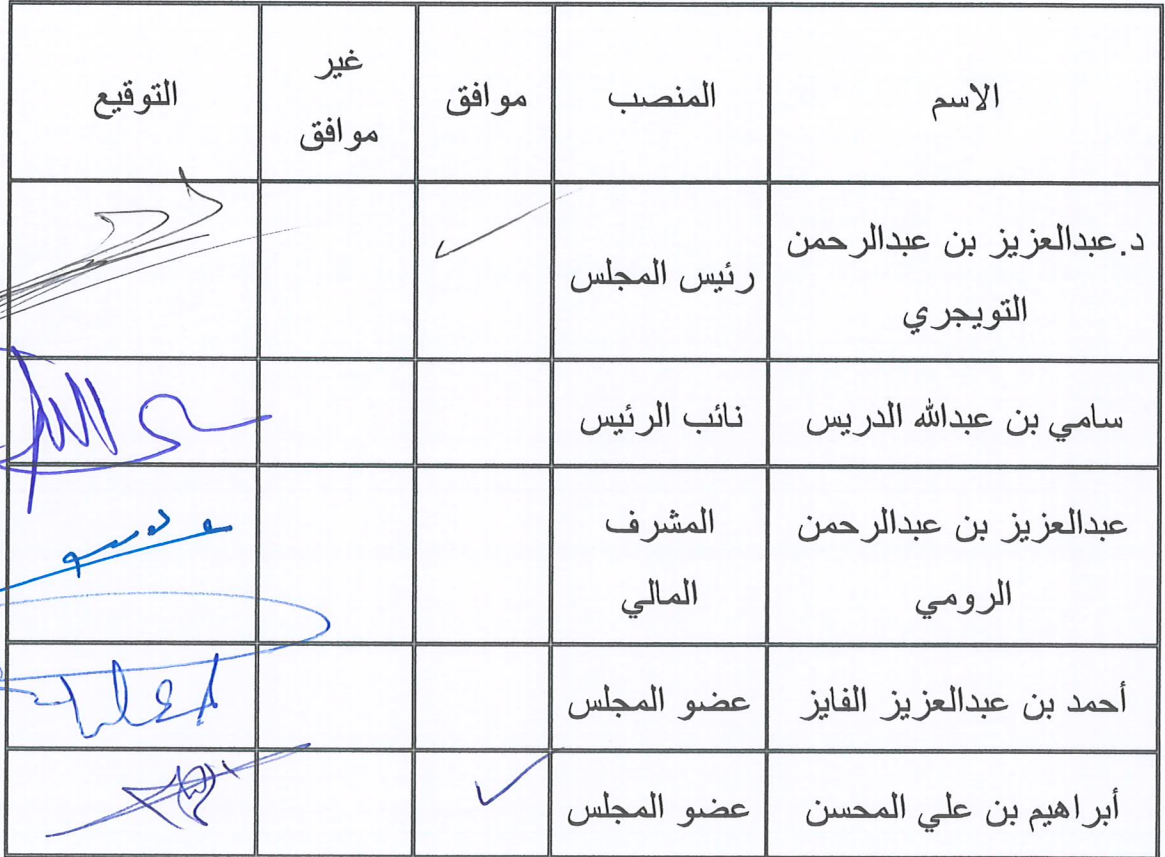 الاسم المنصب موافق غير موافق التوقيع
د.عبدالعزيز بن عبدالرحمن التويجري رئيس المجلس ✓
سامي بن عبدالله الدريس نائب الرئيس
عبدالعزيز بن عبدالرحمن الرومي المشرف المالي
أحمد بن عبدالعزيز الفايز عضو المجلس
أبراهيم بن علي المحسن عضو المجلس ✓